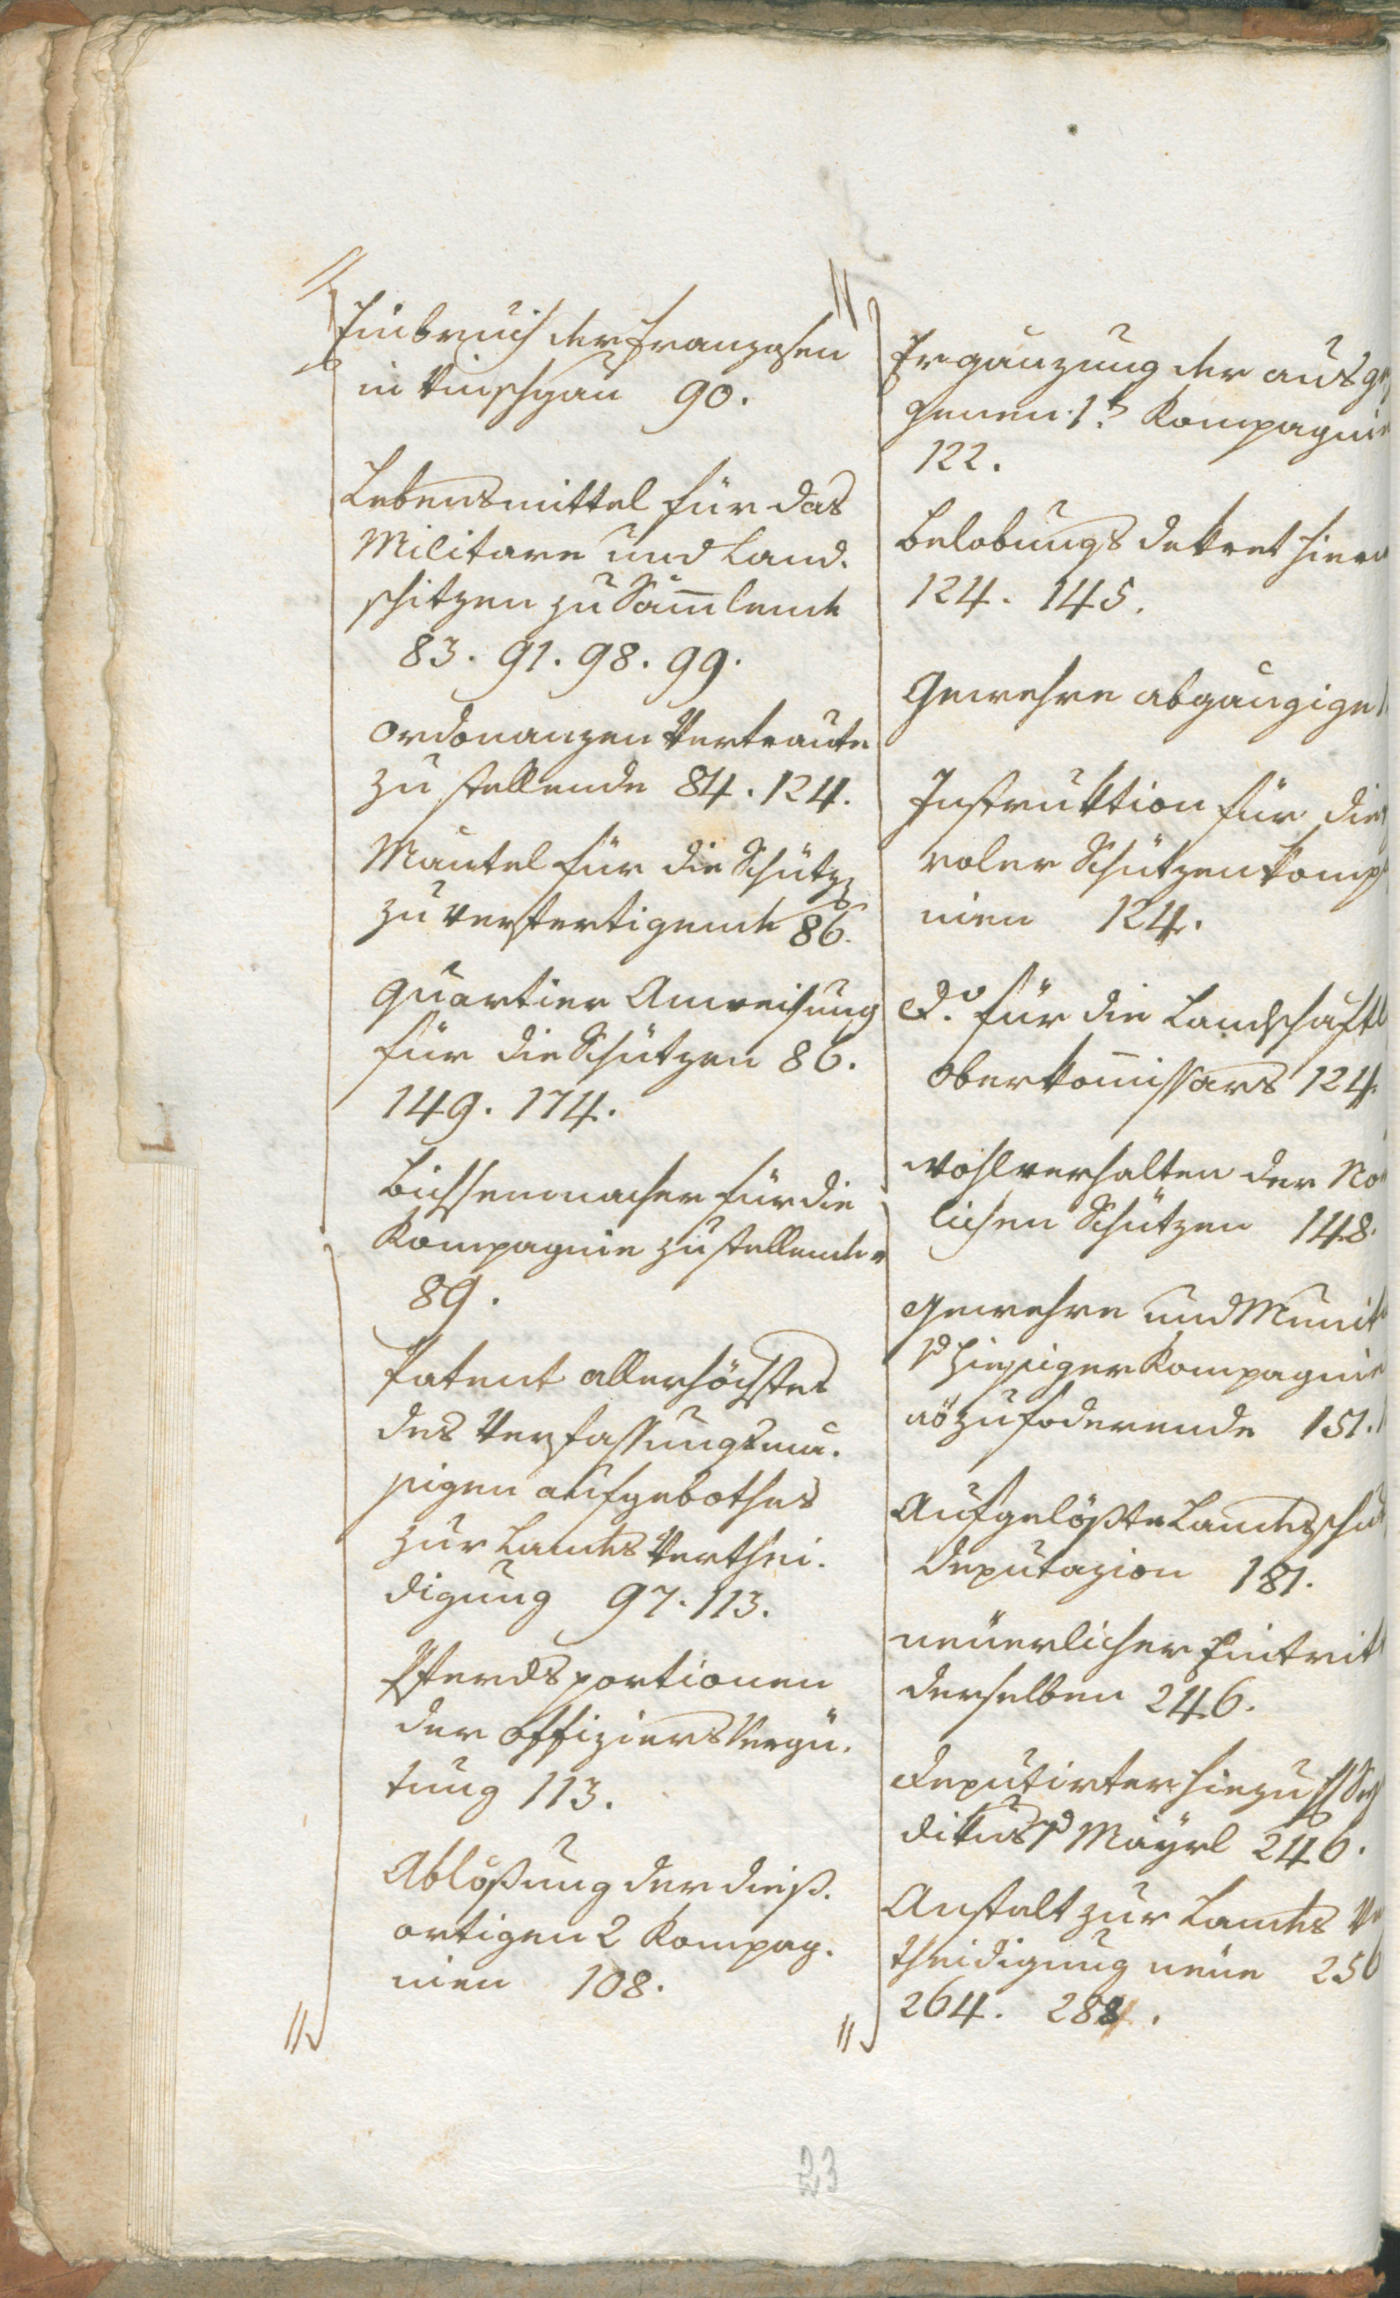 Einbruch der Franzosen
in Vinschgau 90.
Lebensmittel für das
Militare und Land.
schitzen zu Sam̄lende
83. 91. 98. 99.
Ordonanzen Vertraute
zu stellende 84. 124.
Mäntel für die Schütz
zu verfertigende 86.
Quartier Anweisung
für die Schützen 86.
149. 174.
Bichsenmacher für die
Kompagnie zu stellende
89.
Patent allerhöchstes
des Verfassungsmä.
sigen aufgebothes
zur Landes Verthei.
digung 97. 113.
Pferds portionen
der Offiziers Vergü.
tung 113.
Ablößung der dieß.
ortigen 2 Kompag.
nien 108.
Ergänzung der ausge
henen 1t. Kompagnie
122.
Belobungs dekret hier
124. 145.
Gewehre abgängige
Instruktion für die
roler Schützen komp
nien 124.
do. für die Landschaftl
Oberkom̄issars 124.
Wohlverhalten der No
lichen Schützen 148.
Gewehre und Munit
hiesiger Kompagnie
abzufoderende 151.
Aufgelößte Landesschu
Deputazion 181.
neüerlicher Eintrit
derselben 246.
Deputirter hiezu H Syn
dikus Mayrl 246.
Anstalt zur Landes Ve
theidigung neüe 256
264. 284.
23